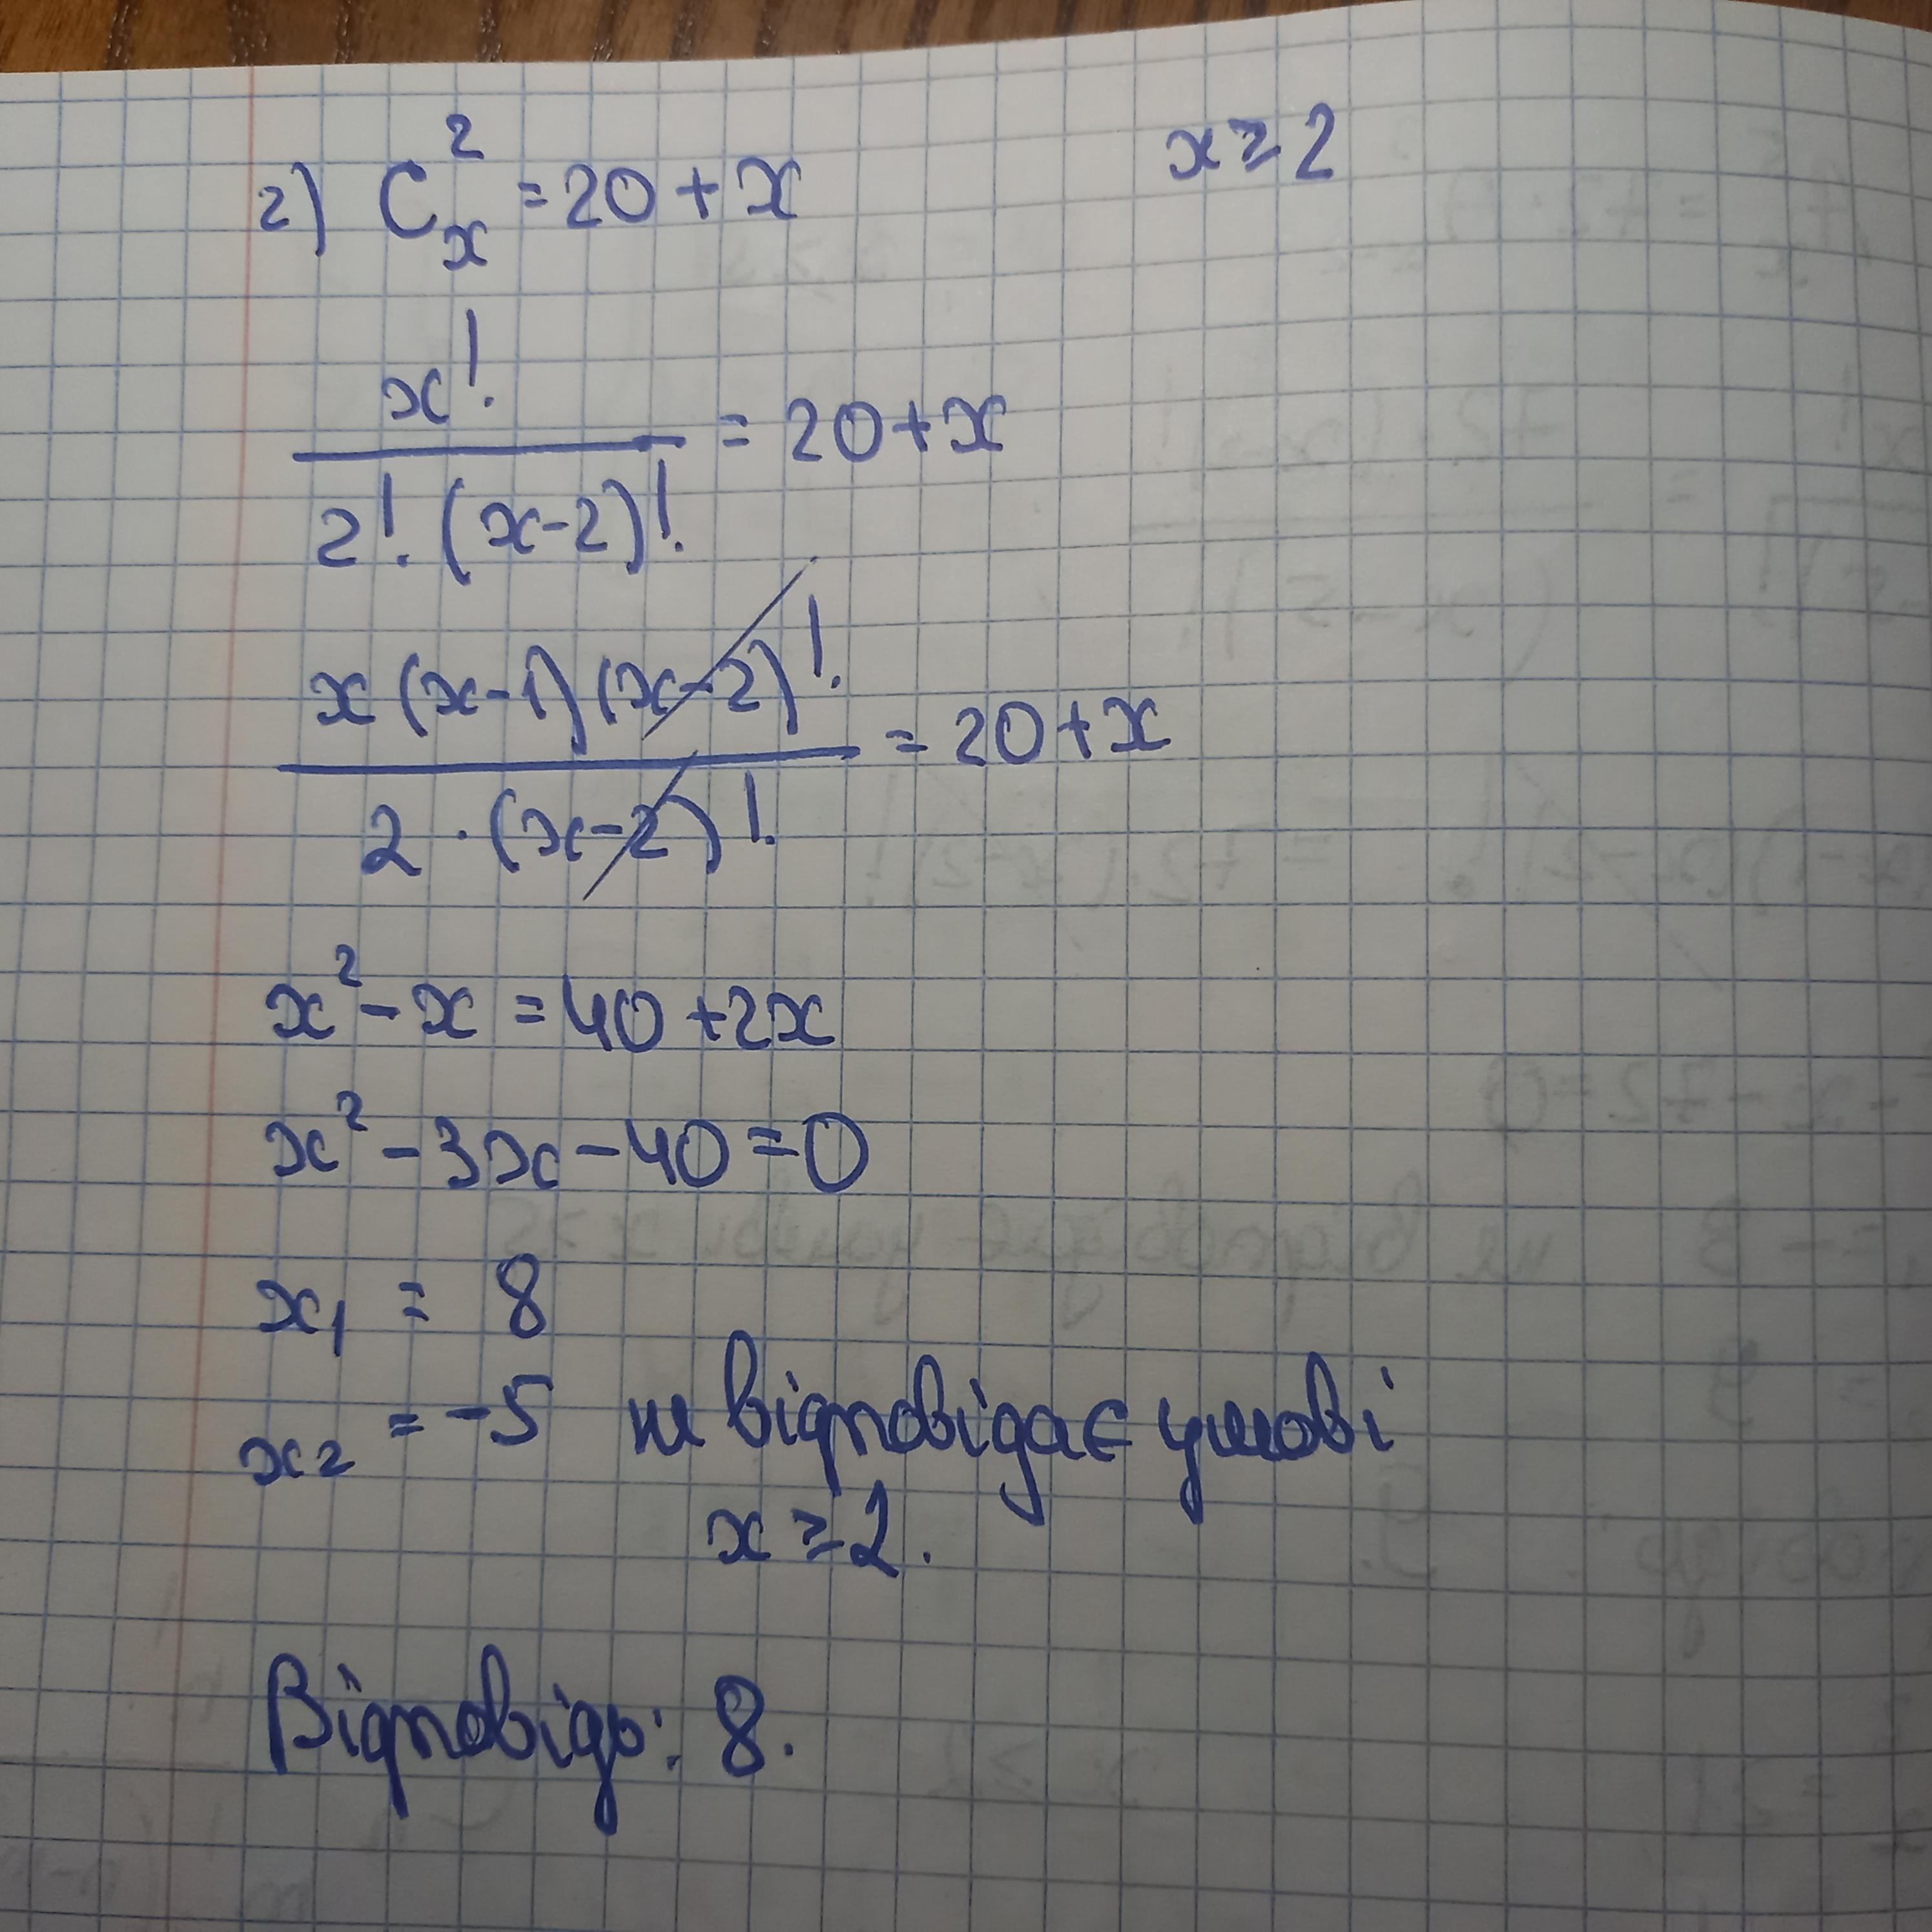 2) C²ₓ = 20 + x x ≥ 2
x! / 2! (x-2)! = 20 + x
x (x-1) (x-2)! / 2 · (x-2)! = 20 + x
x² - x = 40 + 2x
x² - 3x - 40 = 0
x₁ = 8
x₂ = -5 не відповідає умові
x ≥ 2.
Відповідь: 8.